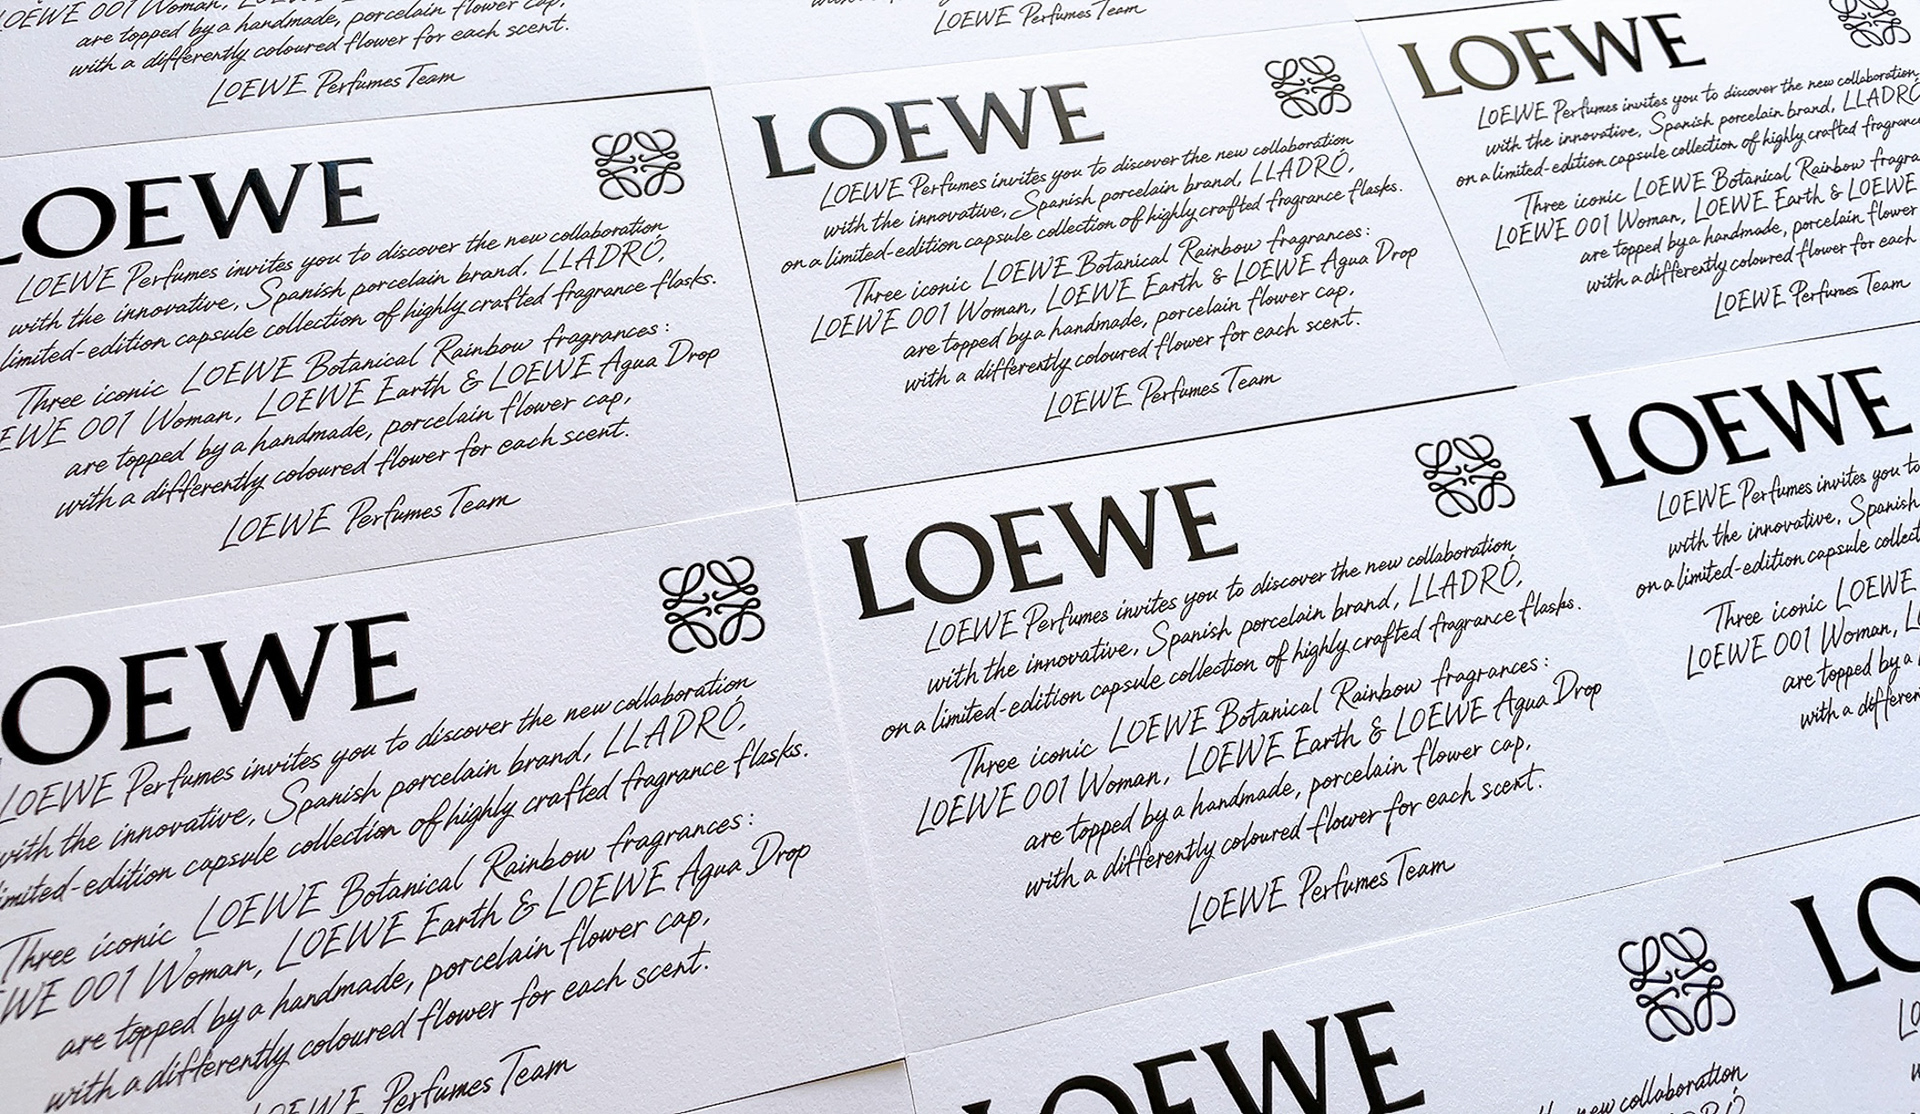 LOEWE 001 Woman,
are topped by a handmade, porcelain flower cap,
with a differently coloured flower for each scent.
LOEWE Perfumes Team
LOEWE Perfumes Team
LOEWE
LOEWE Perfumes invites you to discover the new collaboration
with the innovative, Spanish porcelain brand, LLADRÓ,
limited-edition capsule collection of highly crafted fragrance flasks.
Three iconic LOEWE Botanical Rainbow fragrances:
EWE 001 Woman, LOEWE Earth & LOEWE Agua Drop
are topped by a handmade, porcelain flower cap,
with a differently coloured flower for each scent.
LOEWE Perfumes Team
LOEWE
LOEWE Perfumes invites you to discover the new collaboration
with the innovative, Spanish porcelain brand, LLADRÓ,
on a limited-edition capsule collection of highly crafted fragrance flasks.
Three iconic LOEWE Botanical Rainbow fragrances:
LOEWE 001 Woman, LOEWE Earth & LOEWE Agua Drop
are topped by a handmade, porcelain flower cap,
with a differently coloured flower for each scent.
LOEWE Perfumes Team
LOEWE
LOEWE Perfumes invites you to discover the new collaboration
with the innovative, Spanish porcelain brand, LLADRÓ
on a limited-edition capsule collection of highly crafted fragrance
Three iconic LOEWE Botanical Rainbow fragra
LOEWE 001 Woman, LOEWE Earth & LOEWE
are topped by a handmade, porcelain flower
with a differently coloured flower for each
LOEWE Perfumes Team
OEWE
LOEWE Perfumes invites you to discover the new collaboration
with the innovative, Spanish porcelain brand, LLADRÓ,
limited-edition capsule collection of highly crafted fragrance flasks.
Three iconic LOEWE Botanical Rainbow fragrances:
WE 001 Woman, LOEWE Earth & LOEWE Agua Drop
are topped by a handmade, porcelain flower cap,
with a differently coloured flower for each scent.
LOEWE Perfumes Team
LOEWE
LOEWE Perfumes invites you to discover the new collaboration
with the innovative, Spanish porcelain brand, LLADRÓ,
on a limited-edition capsule collection of highly crafted fragrance flasks.
Three iconic LOEWE Botanical Rainbow fragrances:
LOEWE 001 Woman, LOEWE Earth & LOEWE Agua Drop
are topped by a handmade, porcelain flower cap,
with a differently coloured flower for each scent.
LOEWE Perfumes Team
LOEWE
LOEWE Perfumes invites you to
with the innovative, Spanish
on a limited-edition capsule collect
Three iconic LOEWE
LOEWE 001 Woman, L
are topped by a
with a differen
LOEWE
new collaboration
LO